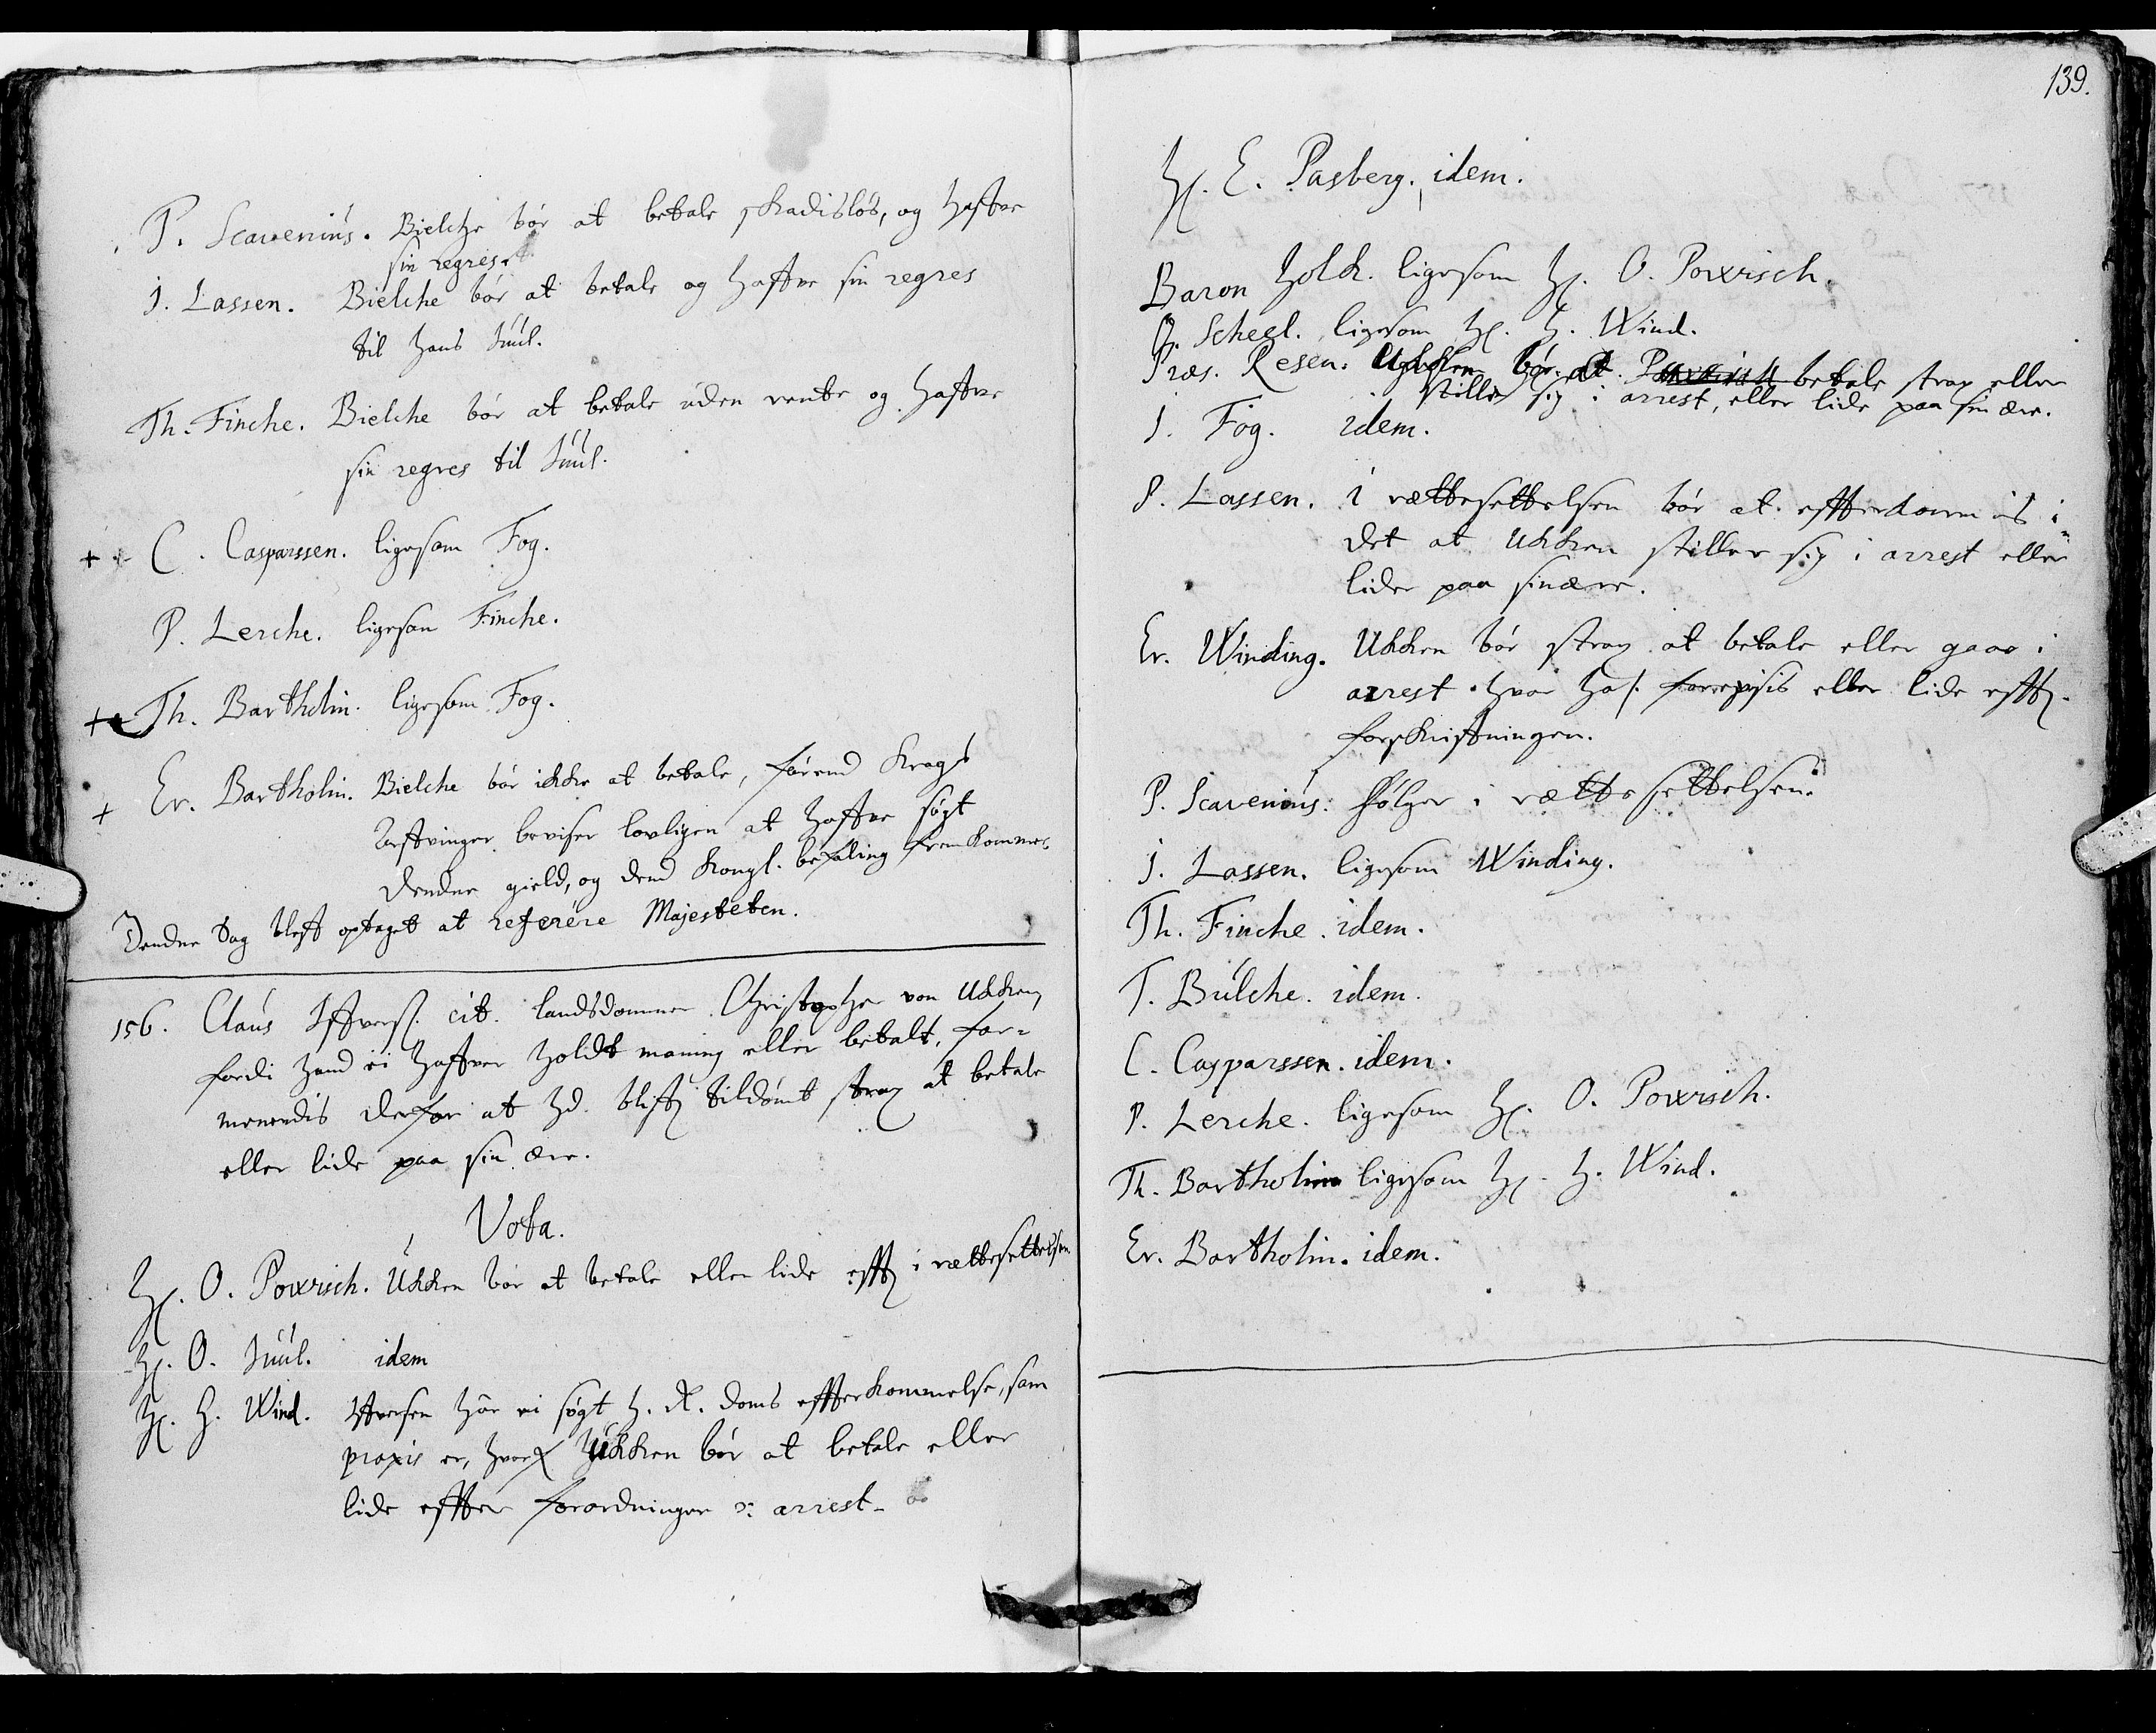 P. Scavenius. Bielche bør at betale skadisløs, og haffve
sin regres.
J. Lassen. Bielche bør at betale og haffve sin regres
til Hans Juul.
Th. Finche. Bielche bør at betale uden rente og haffve
sin regres til Juul.
+ C. Casparssen. ligesom Fog.
P. Lerche. ligesom Finche.
+ Th. Bartholin. ligesom Fog.
+ Er. Bartholin. Bielche bør ikke at betale, førend Krags
Arfvinger beviser lovligen at haffve søgt
denne gield, og dend Kongl. befaling fremkommer
Denne Sag bleff optaget at referere Majesteten.
156. Claus Iffvers. cit. landsdommer Christopher von Ukken,
fordi hand ei haffver holdt maning eller betalt, for-
menendis derfor at hd. bliffr tildømt strax at betale
eller lide paa sin ære.
Vota.
Hr. O. Powisch. Ukken bør at betale eller lide efftr i rettesettelsen
Hr. O. Juul. idem
Hr. H. Wind. Iffversen har ei søgt H. R. doms effterkommelse, som
praxis er, hvorfor Ukken bør at betale eller
lide effter forordninger ɔ: arrest
139.
Hr. E. Pasberg. idem.
Baron Holck. ligesom Hr. O. Powisch.
Scheel. ligesom Hr. H. Wind.
Præs. Resen. Ukken bør at betale strax eller
stille sig i arrest, eller lide paa sin ære.
J. Fog. idem.
P. Lassen. i rættesettelsen bør at efferkommis i
det at Ukken stiller sig i arrest eller
lide paa sin ære.
Er. Winding. Ukken bør strax at betale eller gaae i
arrest hvor ham forevisis eller lide efftr.
forskrifftningen.
P. Scavenius. følger i rættesettelsen.
J. Lassen. ligesom Winding.
Th. Finche. idem.
T. Bülche. idem.
C. Casparssen. idem.
P. Lerche. ligesom Hr. O. Powisch.
Th. Bartholin ligesom Hr. H. Wind.
Er. Bartholin. idem.